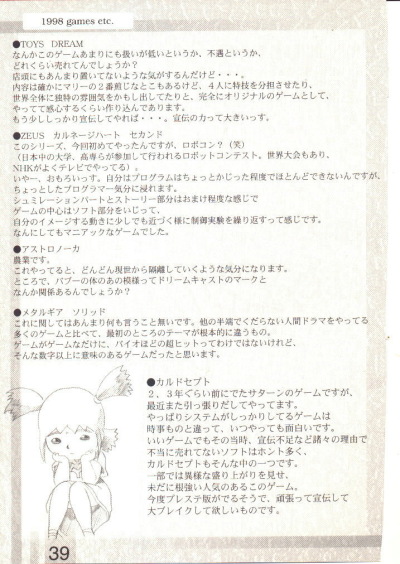 1998 games etc.
●TOYS DREAM
なんかこのゲームあまりにも扱いが低いというか、不遇というか、
どれくらい売れてんでしょうか？
店頭にもあんまり置いてないような気がするんだけど・・・。
内容は確かにマリーの２番煎じなとこもあるけど、４人に特技を分担させたり、
世界全体に独特の雰囲気をかもし出してたりと、完全にオリジナルのゲームとして、
やってて感心するくらい作り込んであります。
もう少ししっかり宣伝してやれば・・・。宣伝の力って大きいっす。
●ZEUS カルネージハート セカンド
このシリーズ、今回初めてやったんですが、ロボコン？（笑）
（日本中の大学、高専らが参加して行われるロボットコンテスト。世界大会もあり、
NHKがよくテレビでやってる）。
いやー、おもろいっす。自分はプログラムはちょっとかじった程度でほとんどできないんですが、
ちょっとしたプログラマー気分に浸れます。
シュミレーションパートとストーリー部分はおまけ程度な感じで
ゲームの中心はソフト部分をいじって、
自分のイメージする動きに少しでも近づく様に制御実験を繰り返すって感じです。
なんにしてもマニアックなゲームでした。
●アストロノーカ
農業です。
これやってると、どんどん現世から隔離していくような気分になります。
ところで、バブーの体のあの模様ってドリームキャストのマークと
なんか関係あるんでしょうか？
●メタルギア ソリッド
これに関してはあんまり何も言うこと無いです。他の半端でくだらない人間ドラマをやってる
多くのゲームと比べて、最初のところのテーマが根本的に違うもの。
ゲームがゲームなだけに、バイオほどの超ヒットってわけではないけれど、
そんな数字以上に意味のあるゲームだったと思います。
●カルドセプト
２、３年ぐらい前にでたサターンのゲームですが、
最近また引っ張りだしてやってます。
やっぱりシステムがしっかりしてるゲームは
時事ものと違って、いつやっても面白いです。
いいゲームでもその当時、宣伝不足など諸々の理由で
不当に売れてないソフトはホント多く、
カルドセプトもそんな中の一つです。
一部では異様な盛り上がりを見せ、
未だに根強い人気のあるこのゲーム。
今度プレステ版がでるそうで、頑張って宣伝して
大ブレイクして欲しいものです。
39